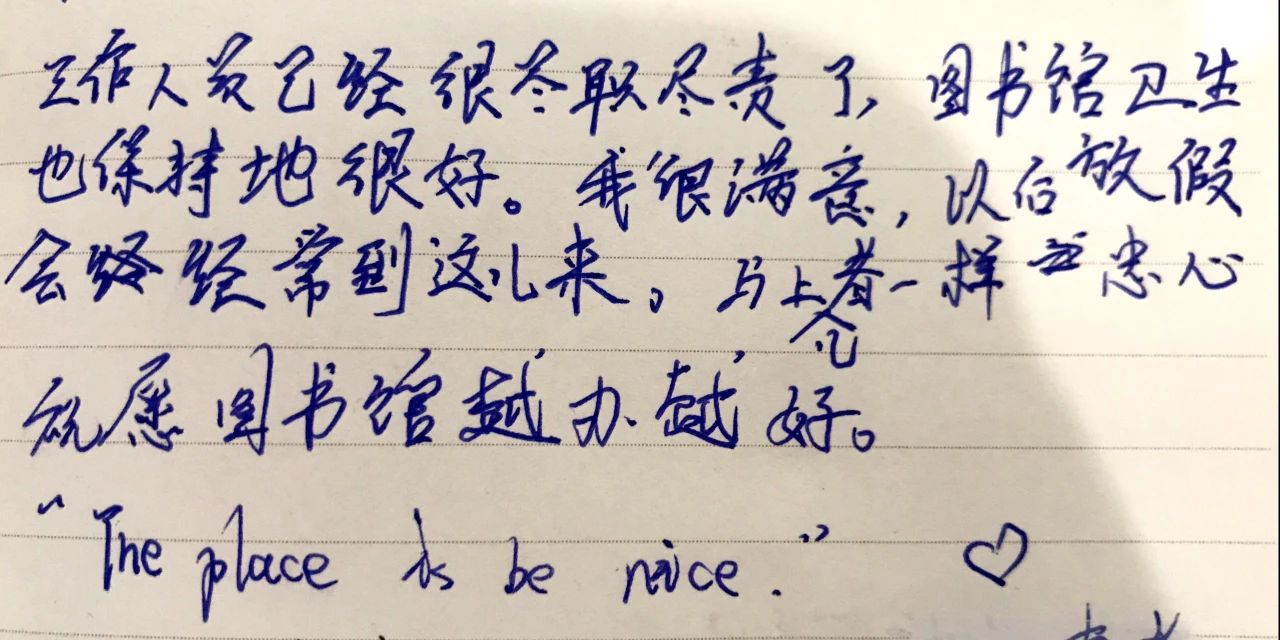 工作人员已经很尽职尽责了，图书馆卫生
也保持地很好。我很满意，以后放假
会经常到这儿来。与上者一样 忠心
祝愿图书馆越办越好。
"The place is be nice." ♡